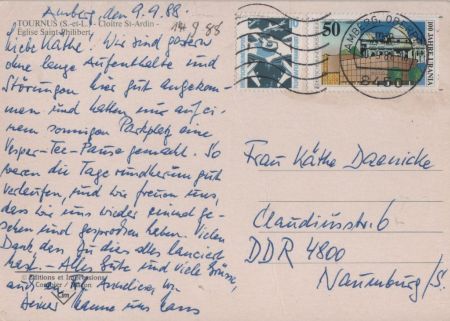 Amberg den 9.9.88.
TOURNUS (S.-et-L.) - Cloître St-Ardin -
Eglise Saint-Philibert
14.9.88
Liebe Käthe! Wir sind gestern
ohne lange Aufenthalte und
Störungen hier gut angekom-
men und hatten nur auf ei-
nem sonnigen Parkplatz eine
Vesper-Tee-Pause gemacht. So
waren die Tage rundherum gut
verlaufen, und wir freuen uns,
dass wir uns wieder einmal ge-
sehen und gesprochen haben. Vielen
Dank, dass Du dies alles lanciert
hast. - Alles Gute und viele Grüsse,
auch an
Deiner Hanne und Hans
© Editions et Impressions
Combier Mâcon
cim
50
100 JAHRE URANIA
AMBERG, OBERPF
8450
Frau Käthe Daenicke
Claudiusstr. 6
DDR 4800
Naumburg/S.